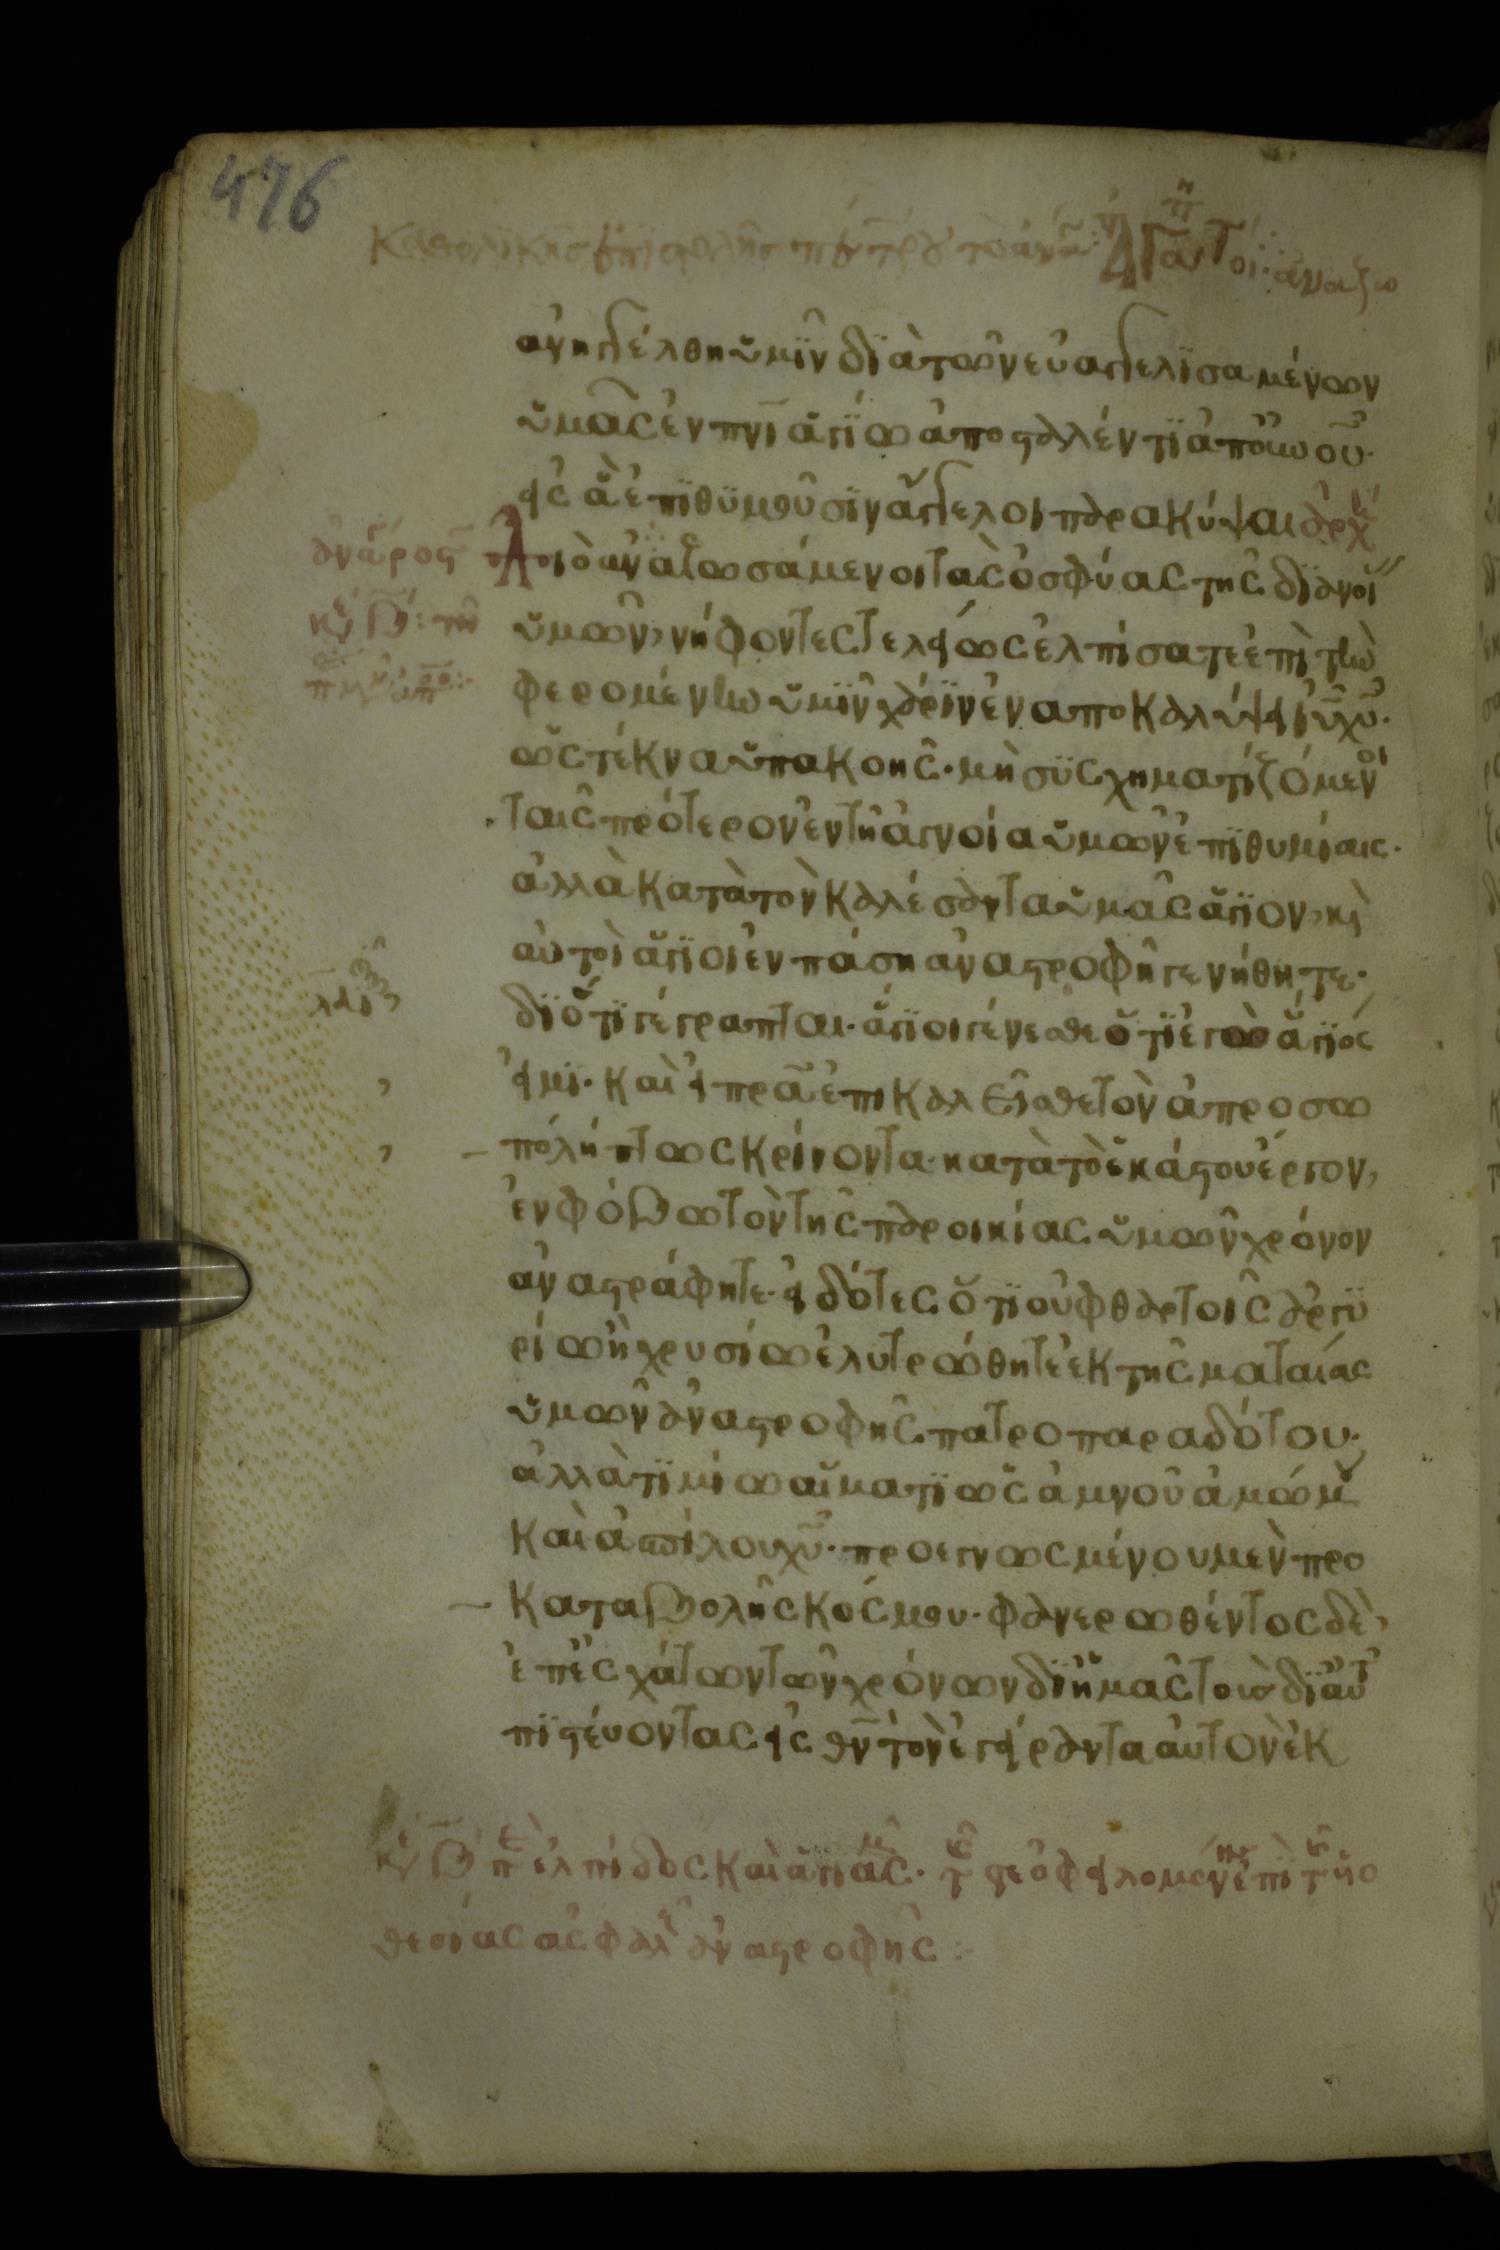 476
Καθολικῆς ἐπιστολῆς πέτρου τὸ ἀνάγ: Ἀγαπητοί: ἀναζω
ἀνηγγέλθη ὑμῖν διὰ τῶν εὐαγγελισαμένων
ὑμᾶς ἐν πνι ἁγίω ἀποσταλέντι ἀπ' οὐνου·
εἰς ἃ ἐπιθυμοῦσιν ἄγγελοι παρακύψαι ἀρχ
διὸ ἀναζωσάμενοι τὰς ὀσφύας τῆς διανοί
ὑμῶν, νήφοντες τελείως ἐλπίσατε ἐπὶ τὴν
φερομένην ὑμῖν χάριν ἐν ἀποκαλύψει ιυ χυ·
ὡς τέκνα ὑπακοῆς· μὴ συσχηματιζόμενοι
ταῖς πρότερον ἐν τῆ ἀγνοία ὑμῶν ἐπιθυμίαις·
ἀλλὰ κατὰ τὸν καλέσαντα ὑμᾶς ἅγιον, κὶ
αὐτοὶ ἅγιοι ἐν πάση ἀναστροφῆ γενήθητε·
διότι γέγραπται· ἅγιοι γένεσθε ὅτι ἐγὼ ἅγιός
εἰμι· καὶ εἰ πρα ἐπικαλεῖσθε τὸν ἀπροσω
πολήπτως κρίνοντα κατὰ τὸ ἑκάστου ἔργον,
ἐν φόβω τὸν τῆς παροικίας ὑμῶν χρόνον
ἀναστράφητε· εἰδότες ὅτι οὐ φθαρτοῖς ἀργυ
ρίω ἢ χρυσίω ἐλυτρώθητε ἐκ τῆς ματαίας
ὑμῶν ἀναστροφῆς πατροπαραδότου·
ἀλλὰ τιμίω αἵματι ὡς ἀμνοῦ ἀμώμου
καὶ ἀσπίλου χυ· προεγνωσμένου μὲν προ
καταβολῆς κόσμου· φανερωθέντος δὲ,
ἐπ' ἐσχάτων τῶν χρόνων δι' ἡμᾶς τοὺς δι' αὐτ
πιστεύοντας εἰς θν τὸν ἐγείραντα αὐτὸν ἐκ
κε β πε ἐλπίδος καὶ ἁγιας· τ τε ὀφειλομένης ἐπὶ τῆ υἱο
θεσίας ἀσφαλ ἀναστροφῆς: